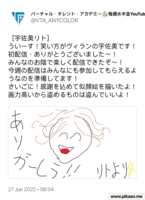 バーチャル・タレント・アカデミー🔥毎週水木金YouTube
@VTA_ANYCOLOR
[宇佐美リト]
ういーす！笑い方がヴィランの宇佐美です！
初配信・ありがとうございましたー！
みんなのお陰で楽しく配信できたぞー！
今週の配信はみんなにも参加してもらえるようなのを準備してます！
さいごに！感謝を込めて似顔絵を描いたよ！
画力高いから盗めるものは盗んでいいよ！
ありがとーう!!
リトより
27 Jun 2022 • 08:04
www.pikaso.me